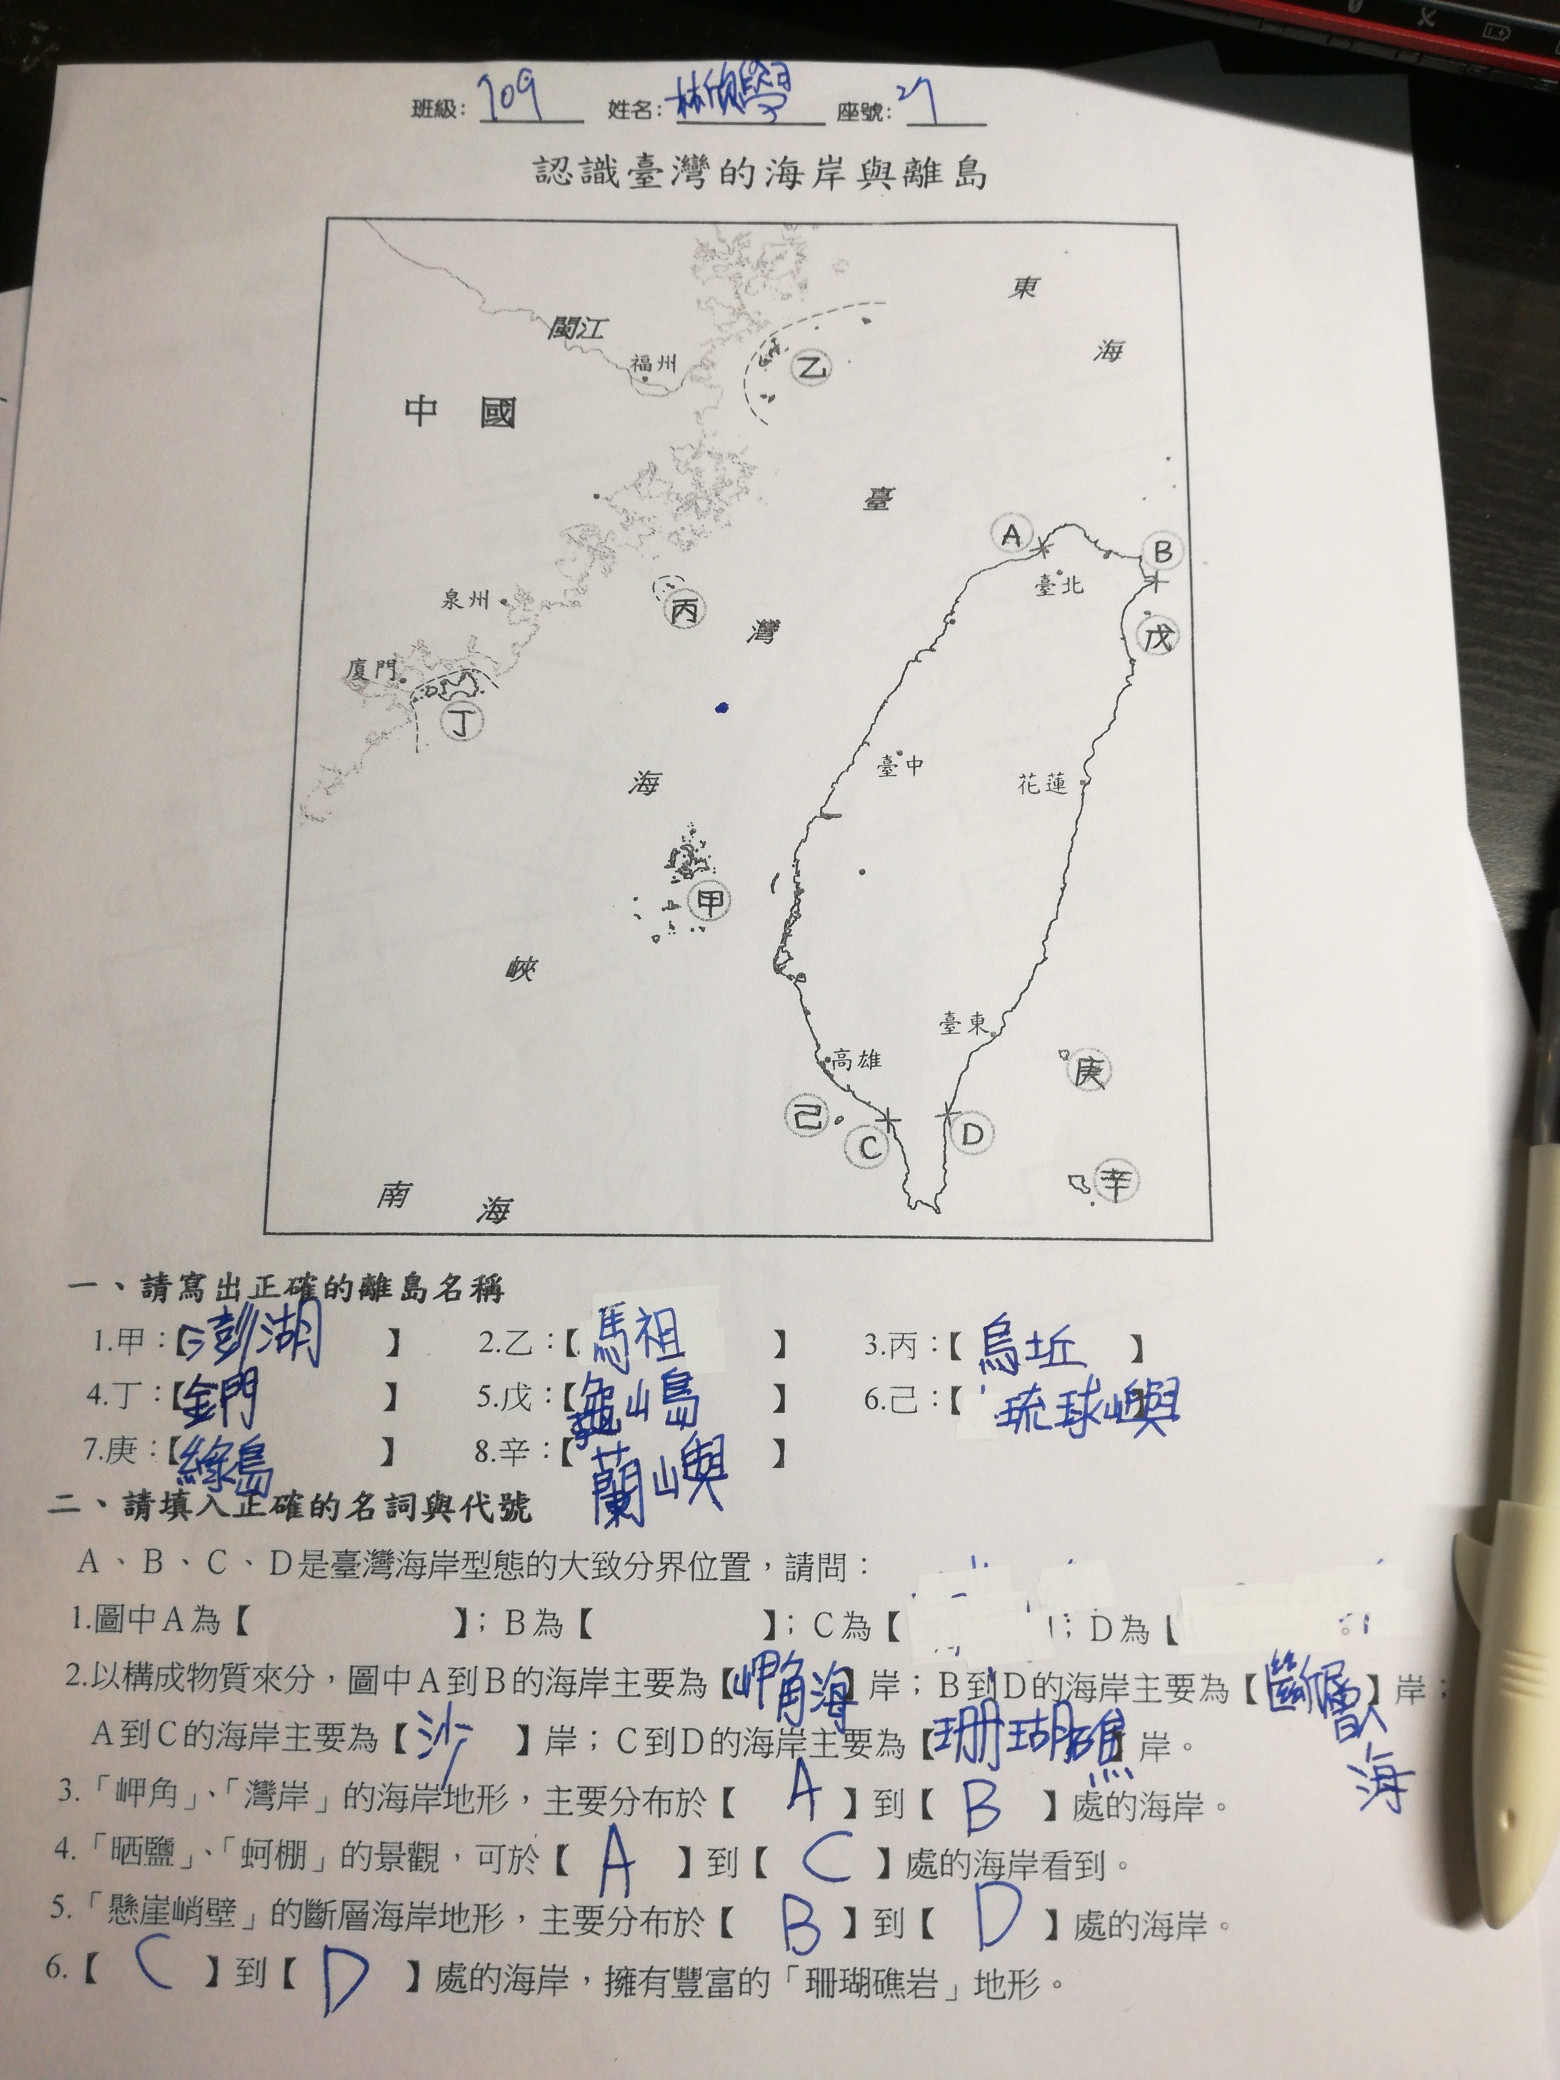 班級：709 姓名：林欣學 座號：27
認識臺灣的海岸與離島
東
閩江
海
福州
乙
中國
臺
A
B
臺北
泉州
丙
灣
戊
廈門
丁
臺中
海
花蓮
甲
峽
臺東
高雄
庚
己
C
D
辛
南 海
一、請寫出正確的離島名稱
1.甲：【澎湖】 2.乙：【馬祖】 3.丙：【烏坵】
4.丁：【金門】 5.戊：【龜山島】 6.己：【琉球嶼】
7.庚：【綠島】 8.辛：【蘭嶼】
二、請填入正確的名詞與代號
A、B、C、D是臺灣海岸型態的大致分界位置，請問：
1.圖中A為【 】；B為【 】；C為【 ；D為【 。
2.以構成物質來分，圖中A到B的海岸主要為【岬角海】岸；B到D的海岸主要為【斷層海】岸；
A到C的海岸主要為【沙】岸；C到D的海岸主要為【珊瑚礁】岸。
3.「岬角」、「灣岸」的海岸地形，主要分布於【A】到【B】處的海岸。
4.「晒鹽」、「蚵棚」的景觀，可於【A】到【C】處的海岸看到。
5.「懸崖峭壁」的斷層海岸地形，主要分布於【B】到【D】處的海岸。
6.【C】到【D】處的海岸，擁有豐富的「珊瑚礁岩」地形。